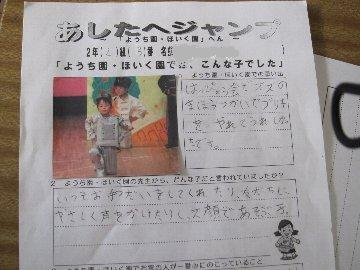 あしたへジャンプ
「ようち園・ほいく園」へん
2年( )組( )番 名前
「ようち園・ほいく園では、こんな子でした」
ようち園・ほいく園での思い出
はっぴょう会でオズの
まほうつかいでブリキ
を やれてうれしかっ
たです。
2 ようち園・ほいく園の先生から、どんな子だと言われていましたか?
いつもお手だいをしてくれたり、友だちに
やさしく声をかけたりし、笑顔であそぶ子。
3 ようち園・ほいく園でお家の人が一番心にのこっていること